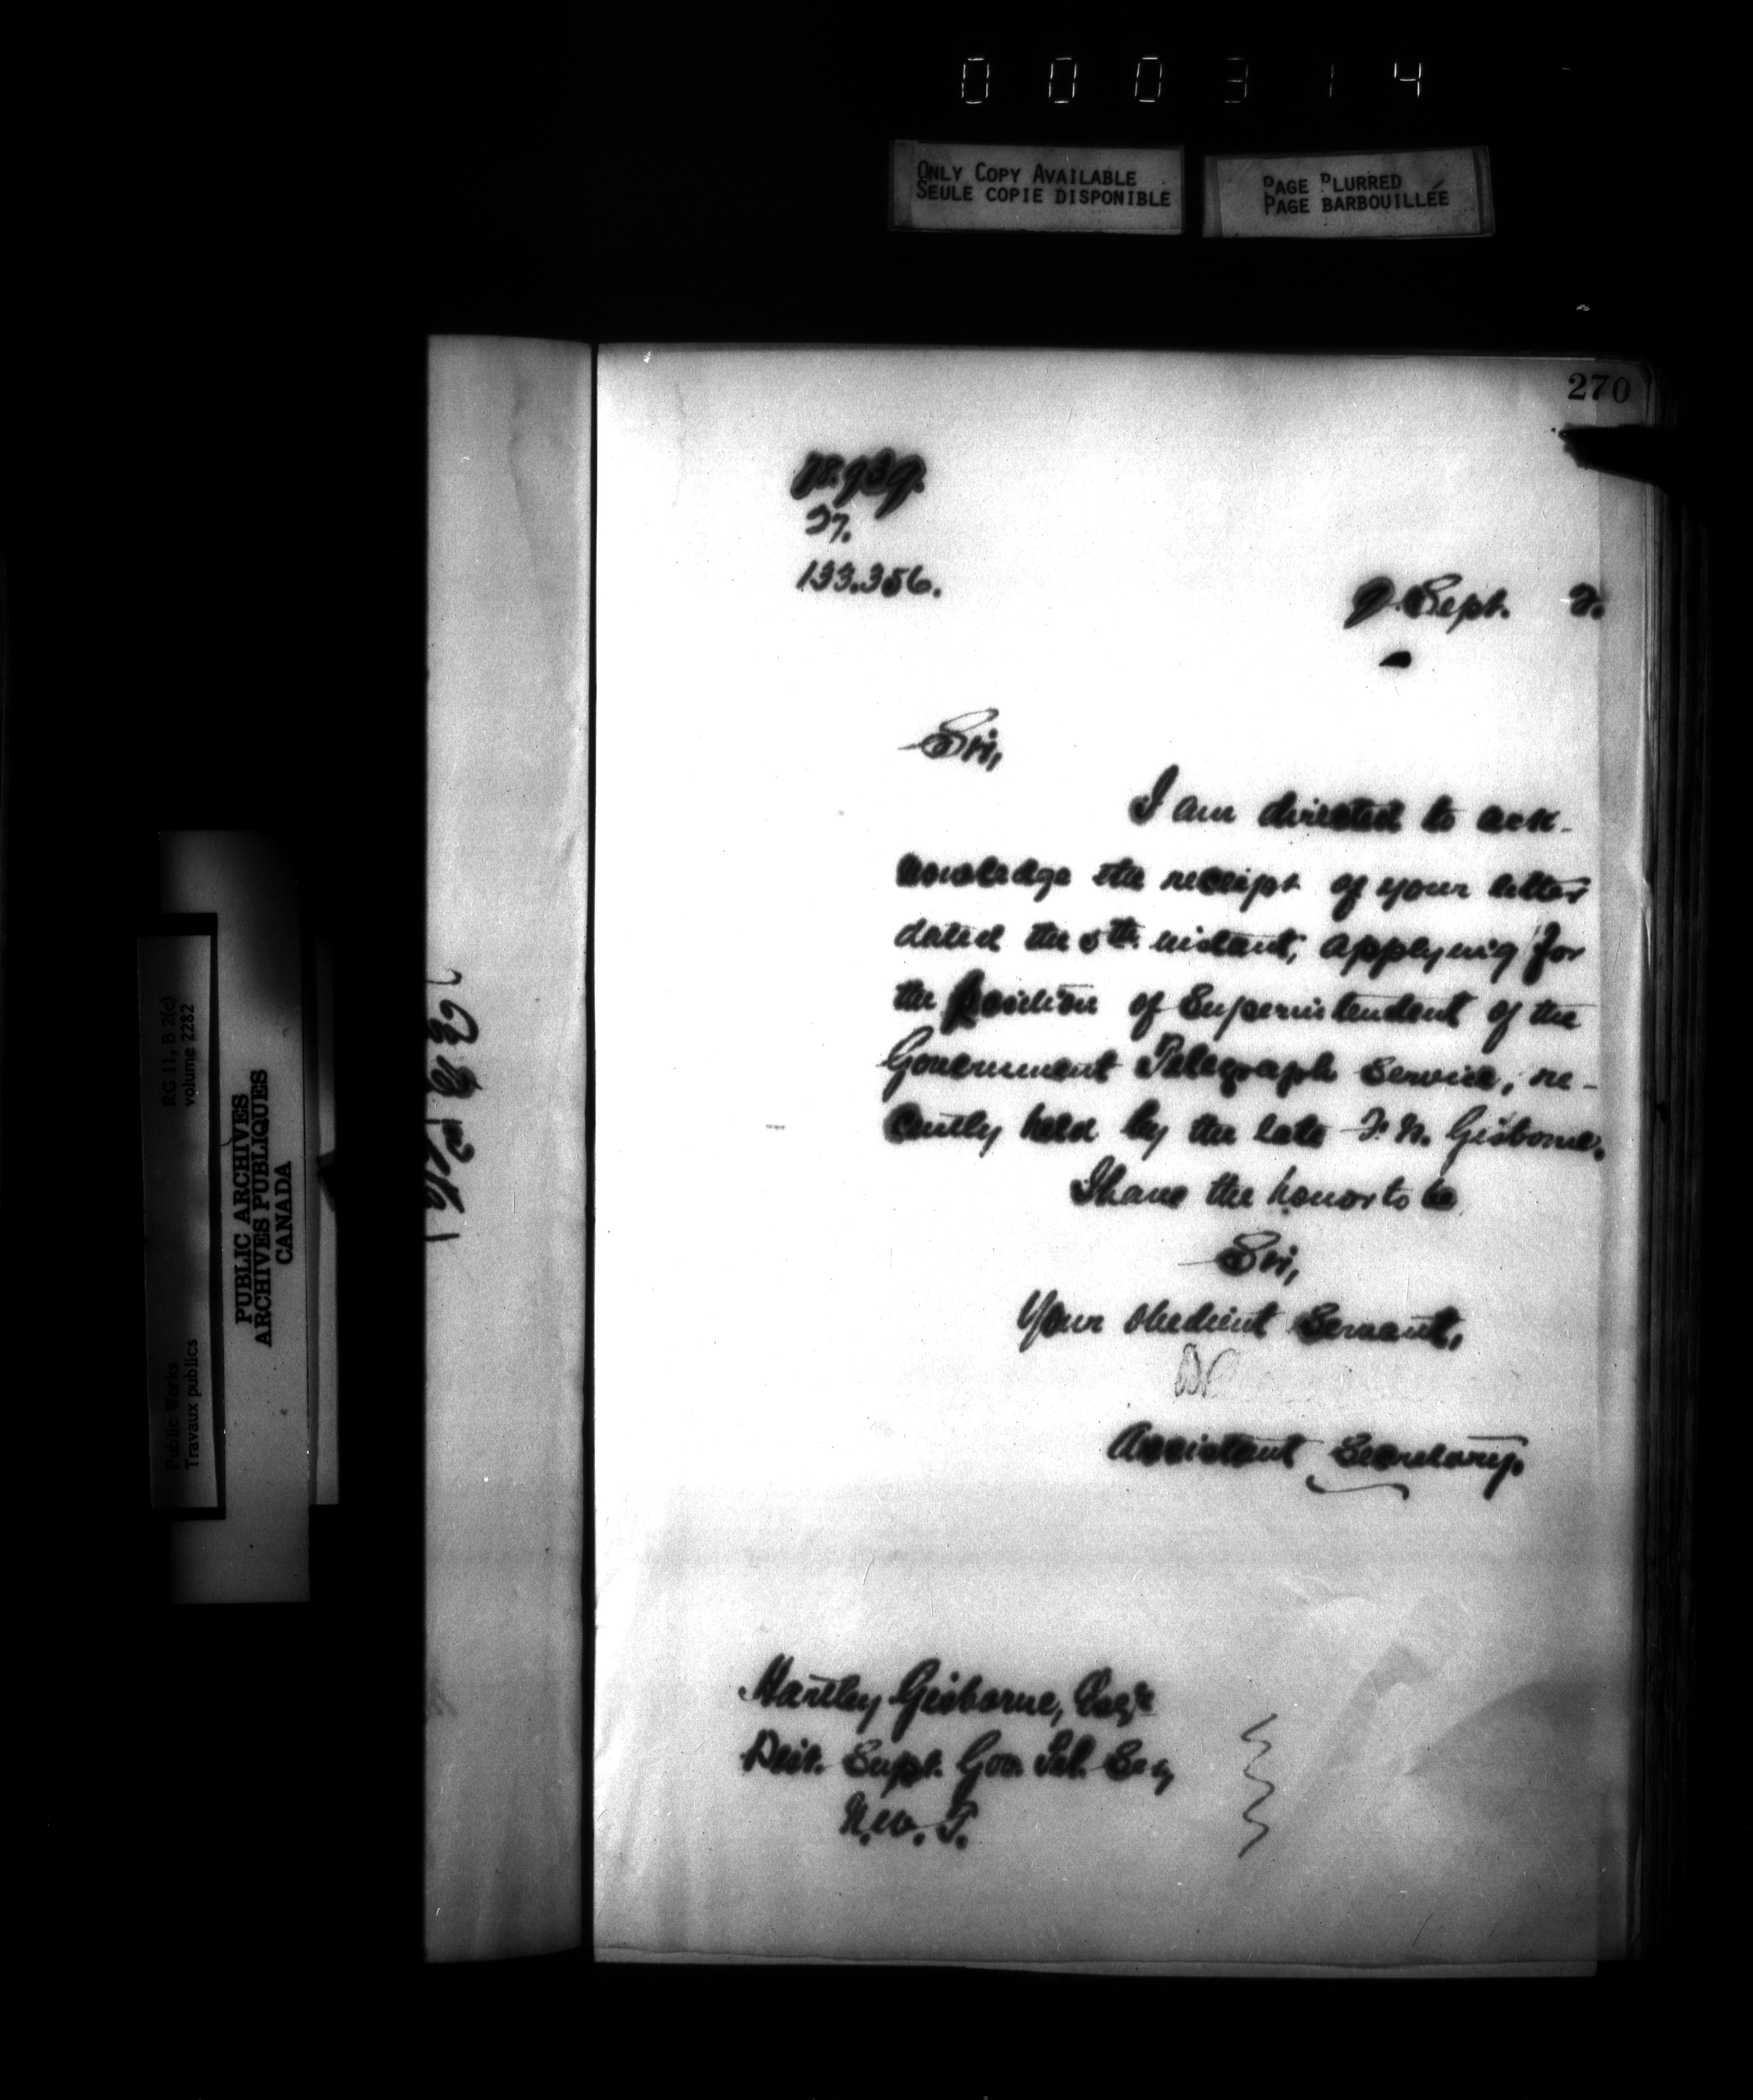 000314
ONLY COPY AVAILABLE
SEULE COPIE DISPONIBLE
PAGE BLURRED
PAGE BARBOUILLÉE
270
27.
133.356.
9 Sept. 2.
Sir,
I am directed to ack-
nowledge the receipt of your letter
dated the 5th instant, applying for
the position of Superintendent of the
Government Telegraph Service, re-
cently held by the late F. N. Gisborne.
I have the honor to be
Sir,
Your obedient Servant,
Assistant Secretary.
Hartley Gisborne, Esqre
Dist. Supt. Gov. Tel.
N.W.T.
RG 11, B 2(c)
volume 2282
Public Works
Travaux publics
PUBLIC ARCHIVES
ARCHIVES PUBLIQUES
CANADA